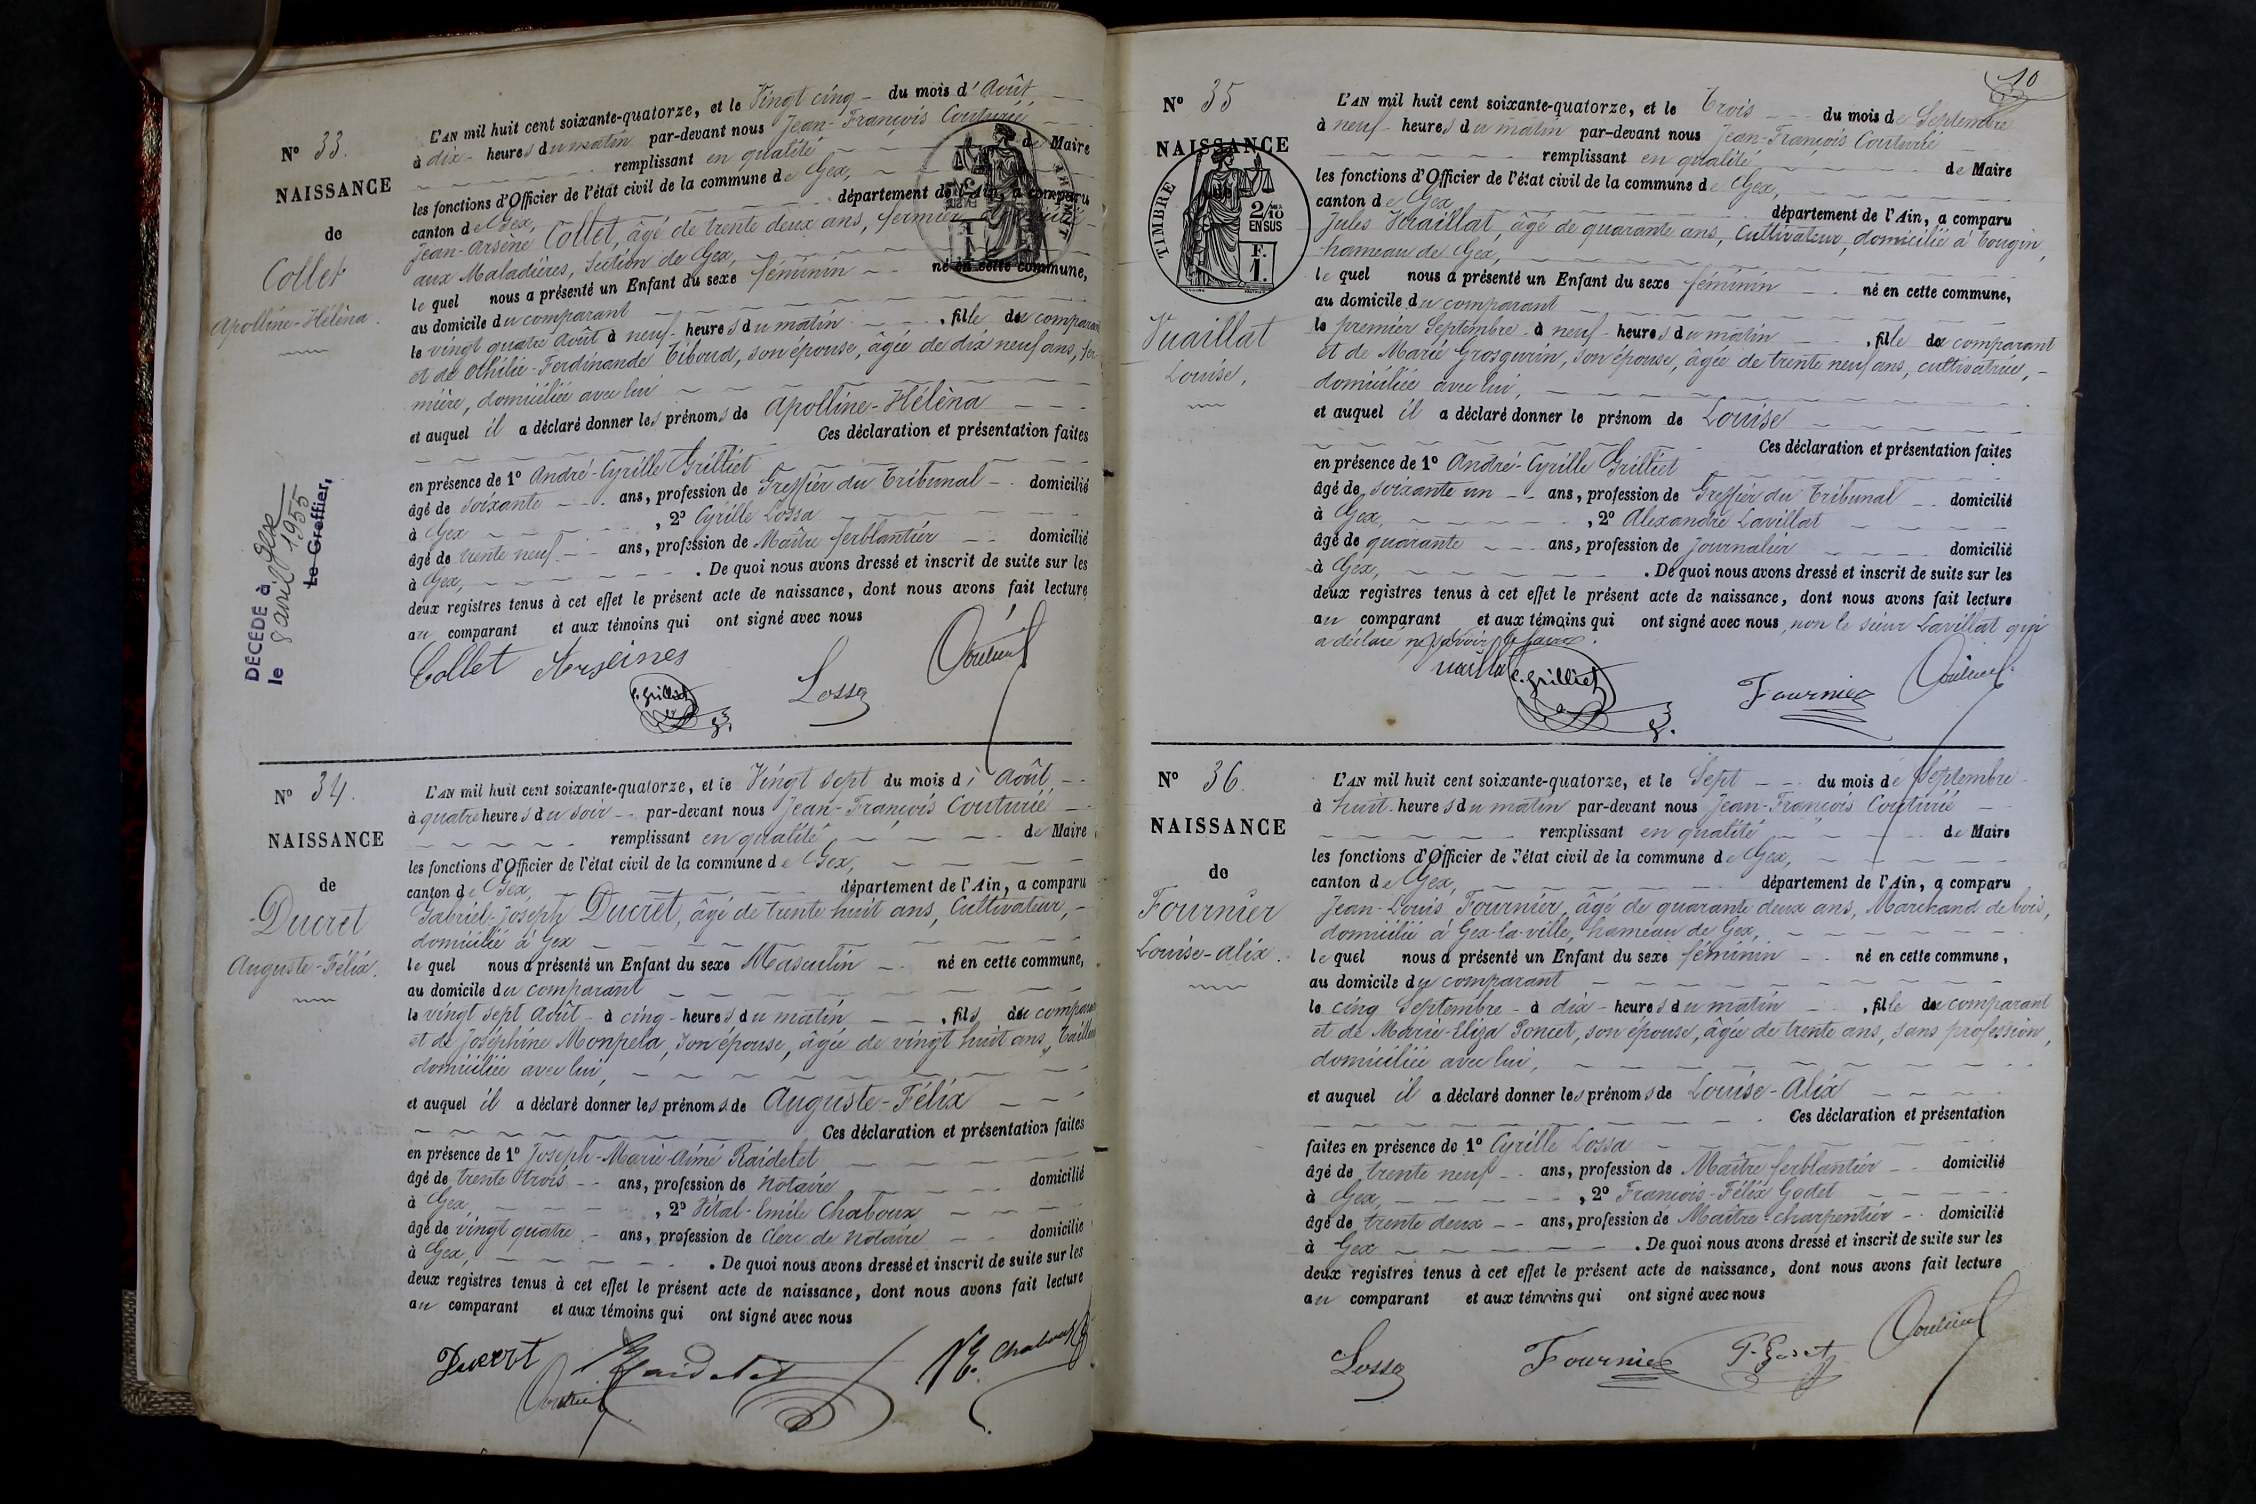 N° 33.
NAISSANCE
de
Collet
Apolline-Hélèna.
DÉCÉDÉ à Gex
le 8 avril 1955
Le Greffier,
L'AN mil huit cent soixante-quatorze, et le Vingt cinq du mois d'Août
à dix heures du matin par-devant nous Jean-François Couturié
remplissant en qualité de Maire
les fonctions d'Officier de l'état civil de la commune de Gex,
canton de Gex, département de l'Ain, a comparu
Jean-Arsène Collet, âgé de trente deux ans, fermier,
aux Maladières, Section de Gex,
le quel nous a présenté un Enfant du sexe féminin né en cette commune,
au domicile du comparant
le vingt quatre Août à neuf heures du matin, fille du comparant
et de Othilie-Ferdinande Tiboud, son épouse, âgée de dix neuf ans, fer
mière, domiciliée avec lui
et auquel il a déclaré donner les prénoms de Apolline-Hélèna
Ces déclaration et présentation faites
en présence de 1° André-Cyrille Grilliet
âgé de soixante ans, profession de Greffier du Tribunal domicilié
à Gex, 2° Cyrille Lossa
âgé de trente neuf ans, profession de Maître ferblantier domicilié
à Gex, . De quoi nous avons dressé et inscrit de suite sur les
deux registres tenus à cet effet le présent acte de naissance, dont nous avons fait lecture
au comparant et aux témoins qui ont signé avec nous
Collet
C. Grilliet
Lossa
N° 34.
NAISSANCE
de
Ducret
Auguste-Félix.
L'AN mil huit cent soixante-quatorze, et le Vingt sept du mois d'Août
à quatre heures du soir par-devant nous Jean-François Couturié
remplissant en qualité de Maire
les fonctions d'Officier de l'état civil de la commune de Gex,
canton de Gex département de l'Ain, a comparu
Gabriel-Joseph Ducret, âgé de trente huit ans, Cultivateur,
domicilié à Gex
le quel nous a présenté un Enfant du sexe Masculin né en cette commune,
au domicile du comparant
le vingt sept Août à cinq heures du matin, fils du comparant
et de Joséphine Monpela, son épouse, âgée de vingt huit ans, Taille
domiciliée avec lui,
et auquel il a déclaré donner les prénoms de Auguste-Félix
Ces déclaration et présentation faites
en présence de 1° Joseph-Marie-Aimé Raidelet
âgé de trente trois ans, profession de Notaire domicilié
à Gex, 2° Vital-Emile Chaboux
âgé de vingt quatre ans, profession de Clerc de Notaire domicilié
à Gex, . De quoi nous avons dressé et inscrit de suite sur les
deux registres tenus à cet effet le présent acte de naissance, dont nous avons fait lecture
au comparant et aux témoins qui ont signé avec nous
Ducret Raidelet V.E. Chaboux
10
N° 35
NAISSANCE
de
TIMBRE
2/10
EN SUS
F.
1.
Vuaillat
Louise,
L'AN mil huit cent soixante-quatorze, et le Trois du mois de Septembre
à neuf heures du matin par-devant nous Jean-François Couturié
remplissant en qualité de Maire
les fonctions d'Officier de l'état civil de la commune de Gex,
canton de Gex département de l'Ain, a comparu
Jules Vuaillat, âgé de quarante ans, Cultivateur, domicilié à Tougin,
hameau de Gex,
le quel nous a présenté un Enfant du sexe féminin né en cette commune,
au domicile du comparant
le premier Septembre à neuf heures du matin, fille du comparant
et de Marie Grosgurin, son épouse, âgée de trente neuf ans, cultivatrice,
domiciliée avec lui,
et auquel il a déclaré donner le prénom de Louise
Ces déclaration et présentation faites
en présence de 1° André-Cyrille Grilliet
âgé de soixante un ans, profession de Greffier du Tribunal domicilié
à Gex, 2° Alexandre Lavillat
âgé de quarante ans, profession de Journalier domicilié
à Gex, . De quoi nous avons dressé et inscrit de suite sur les
deux registres tenus à cet effet le présent acte de naissance, dont nous avons fait lecture
au comparant et aux témoins qui ont signé avec nous, non le sieur Lavillat qui
a déclaré ne savoir le faire.
C. Grilliet
Fournier
N° 36.
NAISSANCE
de
Fournier
Louise-Alix.
L'AN mil huit cent soixante-quatorze, et le Sept du mois de Septembre
à huit heures du matin par-devant nous Jean-François Couturié
remplissant en qualité de Maire
les fonctions d'Officier de l'état civil de la commune de Gex,
canton de Gex, département de l'Ain, a comparu
Jean-Louis Fournier, âgé de quarante deux ans, Marchand de bois,
domicilié à Gex-la-ville, hameau de Gex,
le quel nous a présenté un Enfant du sexe féminin né en cette commune,
au domicile du comparant
le cinq Septembre à dix heures du matin, fille du comparant
et de Marie-Eliza Poncet, son épouse, âgée de trente ans, sans profession,
domiciliée avec lui,
et auquel il a déclaré donner les prénoms de Louise-Alix
Ces déclaration et présentation
faites en présence de 1° Cyrille Lossa
âgé de trente neuf ans, profession de Maître ferblantier domicilié
à Gex, 2° François-Félix Godet
âgé de trente deux ans, profession de Maître-charpentier domicilié
à Gex . De quoi nous avons dressé et inscrit de suite sur les
deux registres tenus à cet effet le présent acte de naissance, dont nous avons fait lecture
au comparant et aux témoins qui ont signé avec nous
Lossa Fournier